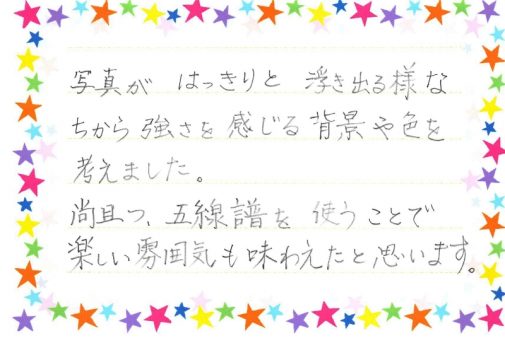 写真が はっきりと 浮き出る様な
ちから強さを感じる背景や色を
考えました。
尚且つ、五線譜を使うことで
楽しい雰囲気も味わえたと思います。